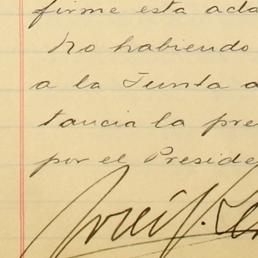 firme esta
No habiendo
a la Junta a
tancia la pre
por el Preside